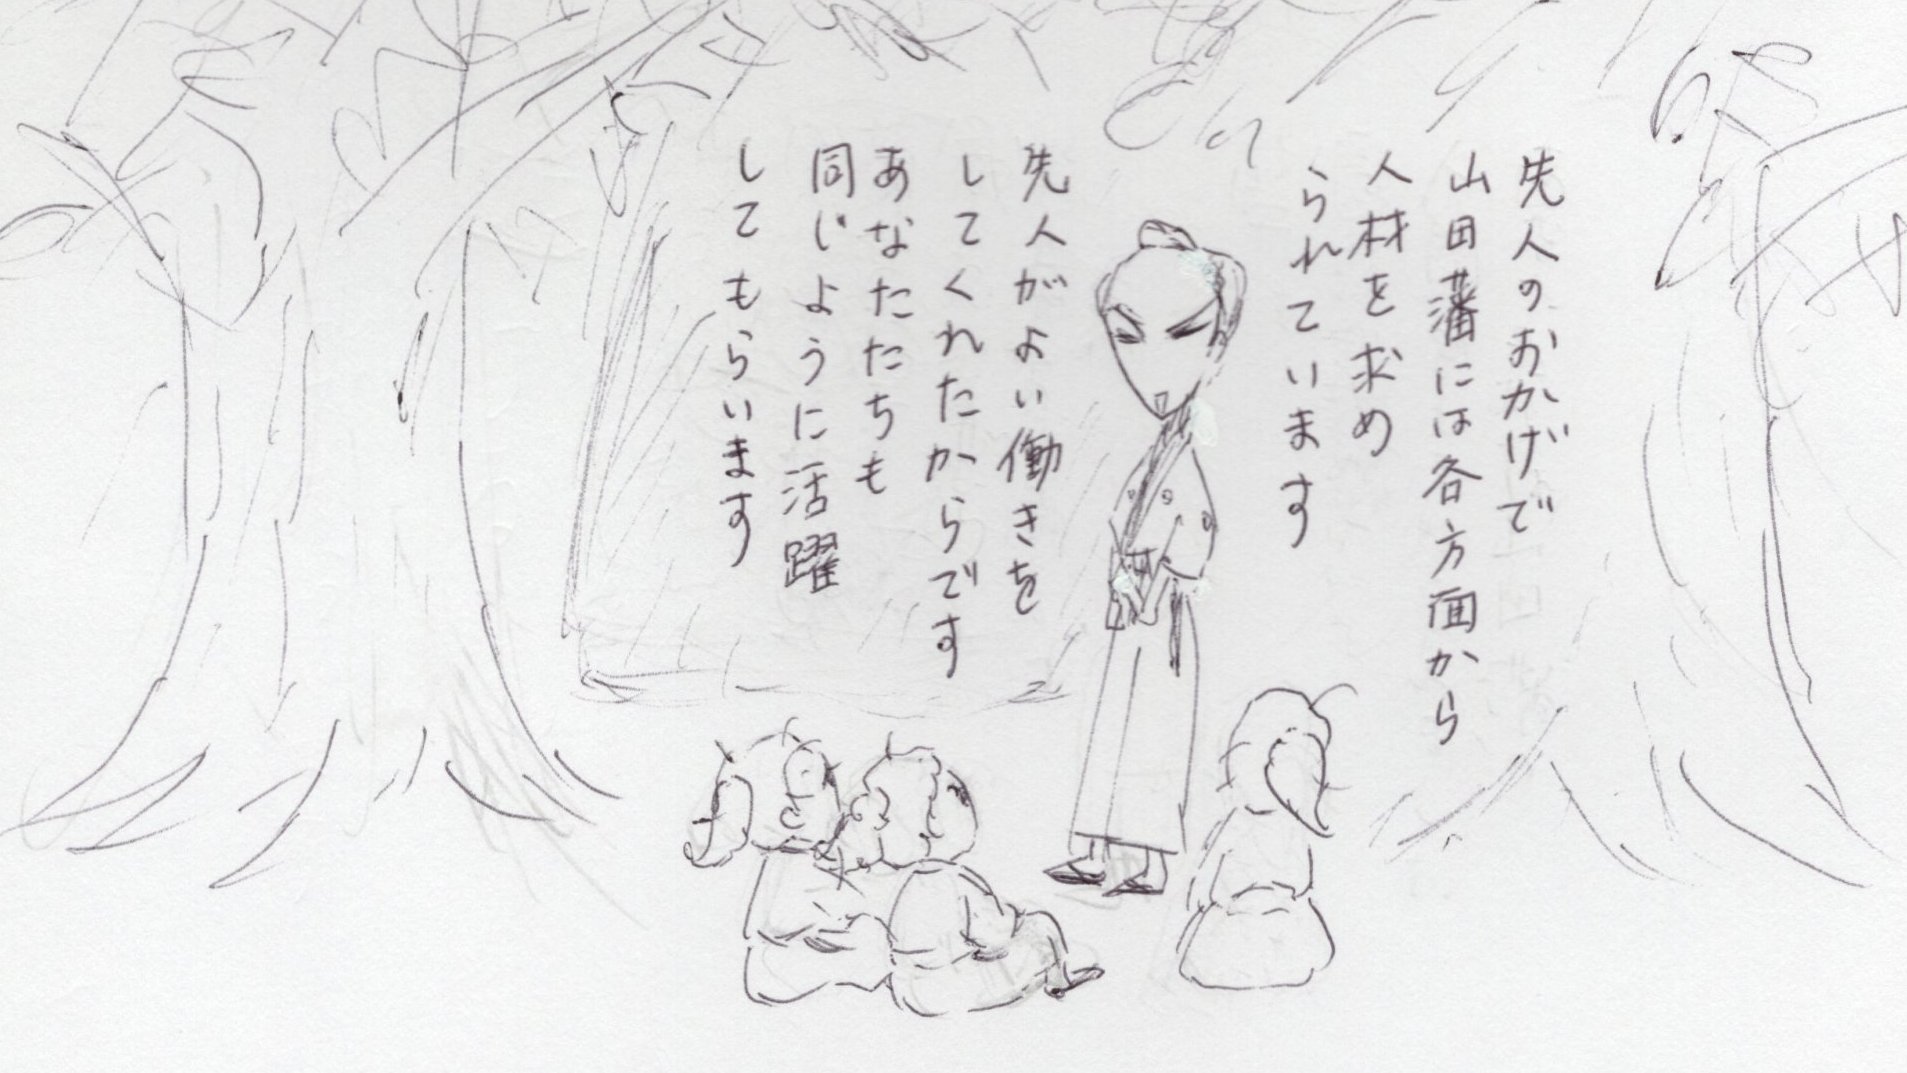 先人のおかげで
山田藩には各方面から
人材を求め
られています
先人がよい働きを
してくれたからです
あなたたちも
同じように活躍
してもらいます